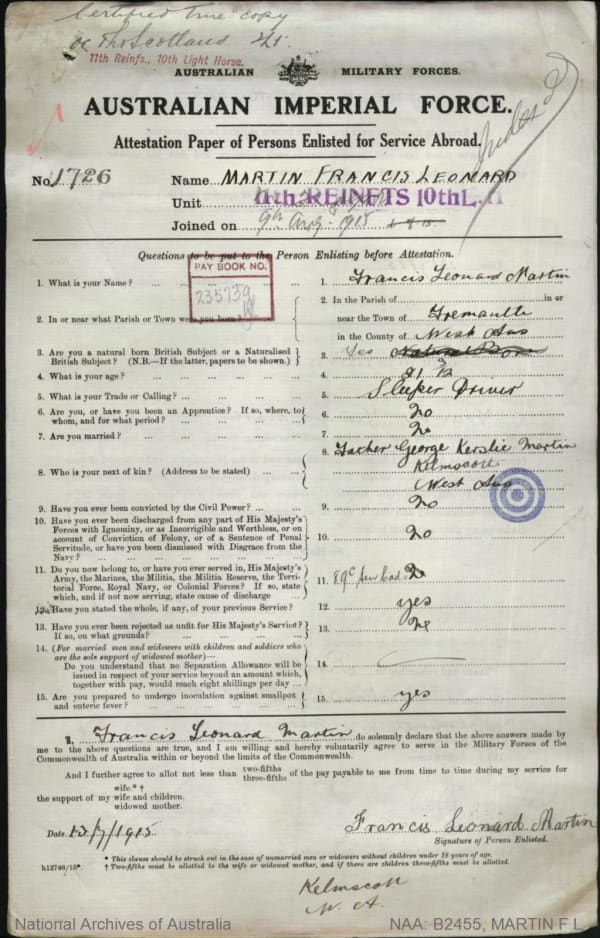 Certified true copy
11th Reinfs., 10th Light Horse.
AUSTRALIAN MILITARY FORCES.
AUSTRALIAN IMPERIAL FORCE.
Attestation Paper of Persons Enlisted for Service Abroad.
No. 1726 Name MARTIN FRANCIS LEONARD
Unit 11th REINFTS 10th L.H
Joined on 9th Aug. 1915
Questions to be put to the Person Enlisting before Attestation.
PAY BOOK NO.
235739
1. What is your Name? ... 1. Francis Leonard Martin
2. In or near what Parish or Town were you born? 2. In the Parish of in or
near the Town of Fremantle
in the County of West Aus
3. Are you a natural born British Subject or a Naturalised
British Subject? (N.B.—If the latter, papers to be shown.) 3. Yes Natural Born
4. What is your age? ... 4. 21 3/12
5. What is your Trade or Calling? ... 5. Sleeper Driver
6. Are you, or have you been an Apprentice? If so, where, to
whom, and for what period? ... 6. No
7. Are you married? ... 7. No
8. Who is your next of kin? (Address to be stated) ... 8. Father George Kerslie Martin
Kelmscott
West Aus
9. Have you ever been convicted by the Civil Power? ... 9. No
10. Have you ever been discharged from any part of His Majesty's
Forces with Ignominy, or as Incorrigible and Worthless, or on
account of Conviction of Felony, or of a Sentence of Penal
Servitude, or have you been Dismissed with Disgrace from the
Navy? ... 10. No
11. Do you now belong to, or have you ever served in, His Majesty's
Army, the Marines, the Militia, the Militia Reserve, the Terri-
torial Force, Royal Navy, or Colonial Forces? If so, state
which, and if not now serving, state cause of discharge ... 11. No
12. Have you stated the whole, if any, of your previous Service? 12. yes
13. Have you ever been rejected as unfit for His Majesty's Service?
If so, on what grounds? ... 13. No
14. (For married men and widowers with children and soldiers who
are the sole support of widowed mother)—
Do you understand that no Separation Allowance will be
issued in respect of your service beyond an amount which,
together with pay, would reach eight shillings per day ... 14.
15. Are you prepared to undergo inoculation against smallpox
and enteric fever? ... 15. yes
I, Francis Leonard Martin do solemnly declare that the above answers made by
me to the above questions are true, and I am willing and hereby voluntarily agree to serve in the Military Forces of the
Commonwealth of Australia within or beyond the limits of the Commonwealth.
And I further agree to allot not less than two-fifths three-fifths of the pay payable to me from time to time during my service for
wife.* †
the support of my wife and children.
widowed mother.
Date 13/7/1915 Francis Leonard Martin
Signature of Person Enlisted.
h12748/15* * This clause should be struck out in the case of unmarried men or widowers without children under 18 years of age.
† Two-fifths must be allotted to the wife or widowed mother, and if there are children three-fifths must be allotted.
Kelmscott
W. A.
National Archives of Australia NAA: B2455, MARTIN F L